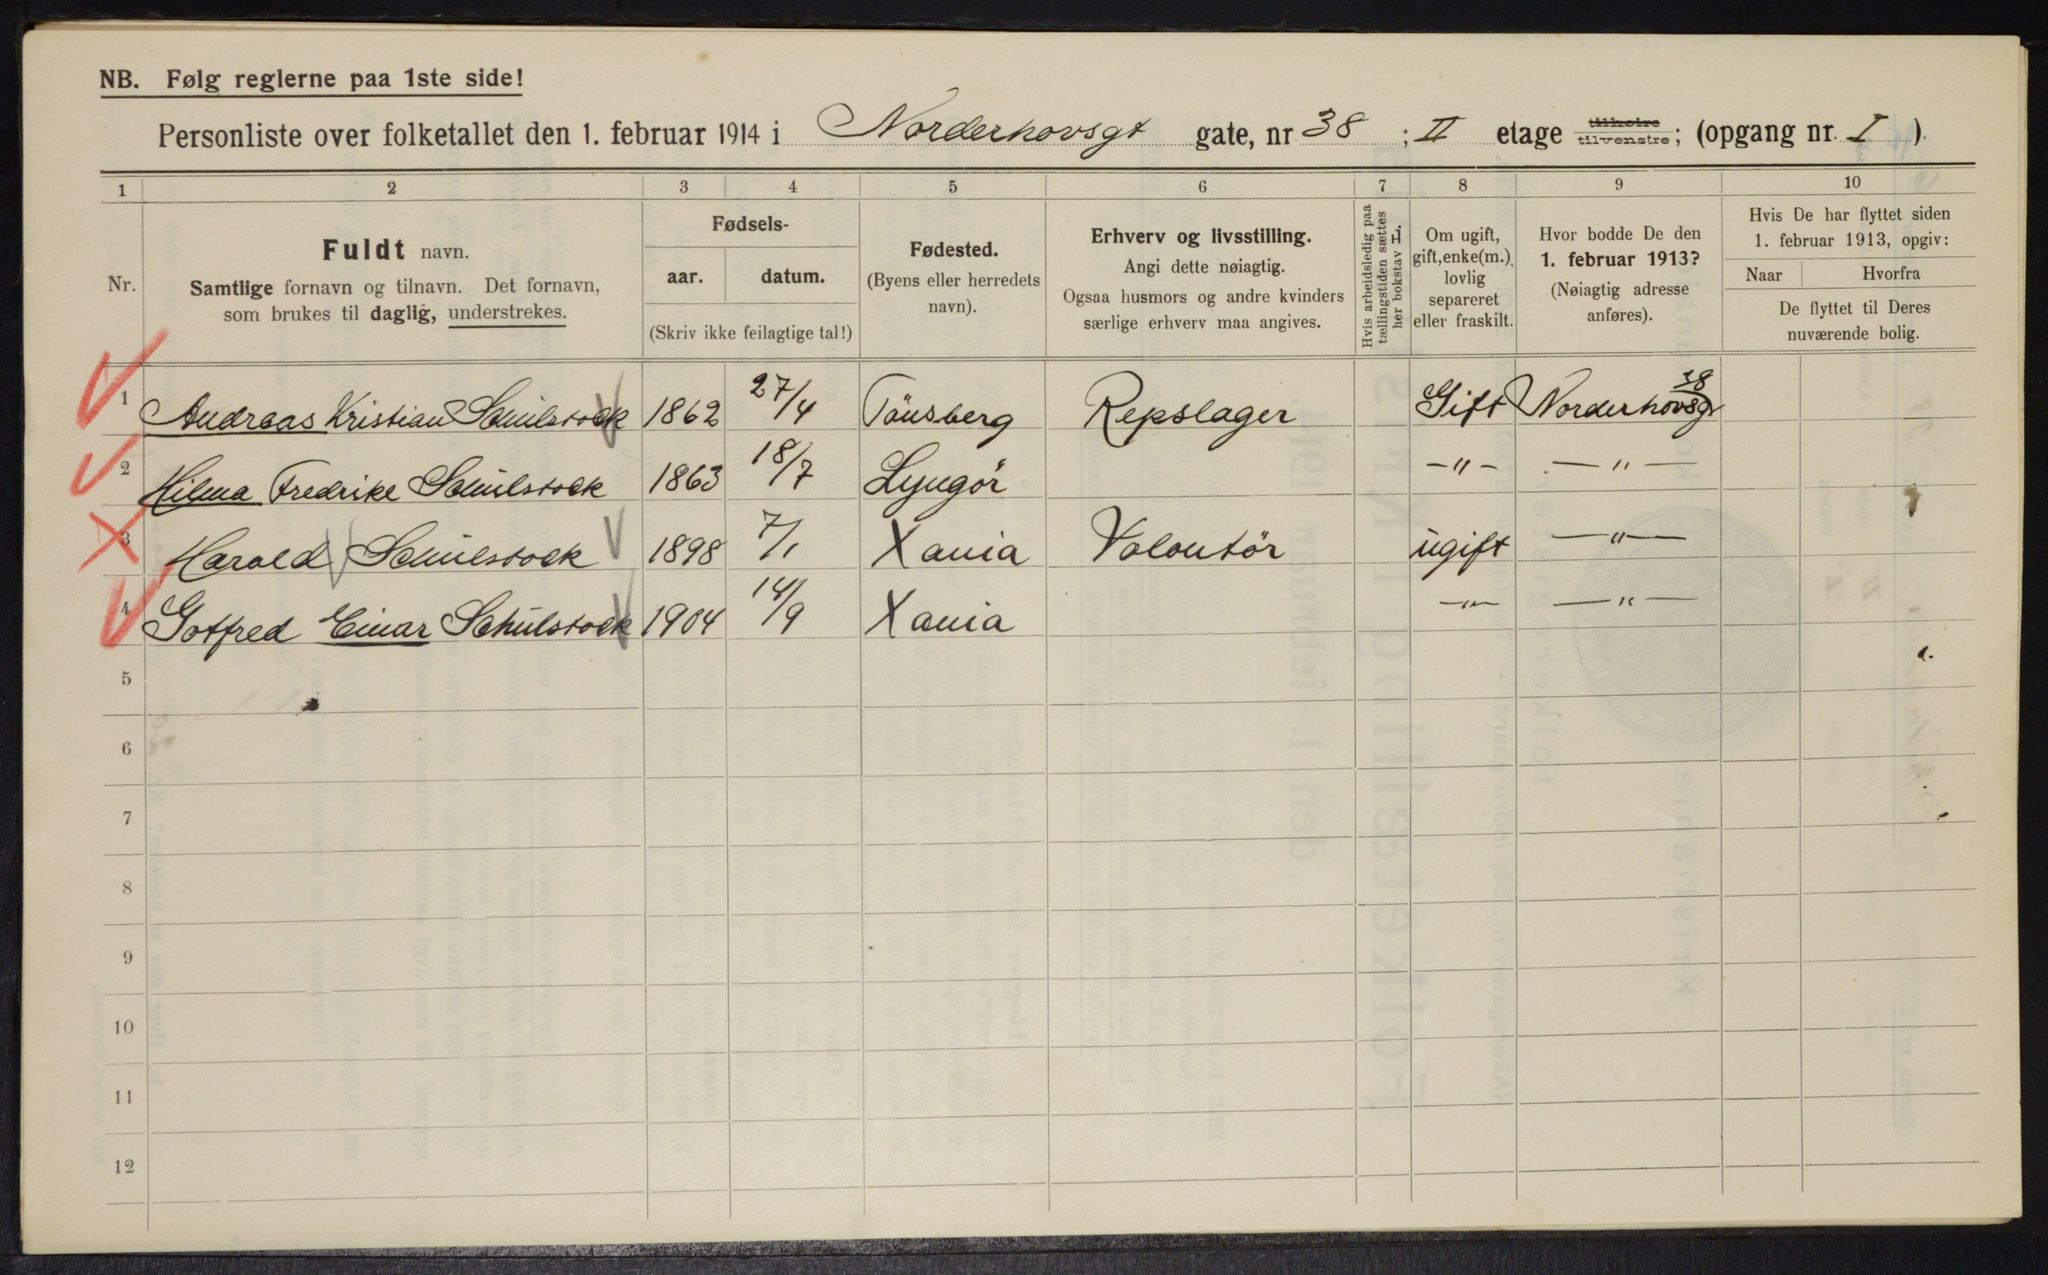 NB. Følg reglerne paa 1ste side!
Personliste over folketallet den 1. februar 1914 i Norderhovsgt gate, nr 38 ; II etage tilhøire tilvenstre; (opgang nr. I ).
1 2 3 4 5 6 7 8 9 10
Nr.
Fuldt navn.
Samtlige fornavn og tilnavn. Det fornavn,
som brukes til daglig, understrekes.
Fødsels-
aar. datum.
(Skriv ikke feilagtige tal!)
Fødested.
(Byens eller herredets
navn).
Erhverv og livsstilling.
Angi dette nøiagtig.
Ogsaa husmors og andre kvinders
særlige erhverv maa angives.
Hvis arbeidsledig paa
tællingstiden sættes
her bokstav L.
Om ugift,
gift, enke(m.),
lovlig
separeret
eller fraskilt.
Hvor bodde De den
1. februar 1913?
(Nøiagtig adresse
anføres).
Hvis De har flyttet siden
1. februar 1913, opgiv:
Naar Hvorfra
De flyttet til Deres
nuværende bolig.
1 Andreas Kristian Schulstock 1862 27/4 Tönsberg Repslager Gift Norderhovsgt 38
2 Hilma Fredrike Schulstock 1863 18/7 Lyngör -"- -"-
3 Harald Schulstock 1898 7/1 Xania Volontör ugift -"-
4 Gotfred Einar Schulstock 1904 14/9 Xania -"- -"-
5
6
7
8
9
10
11
12